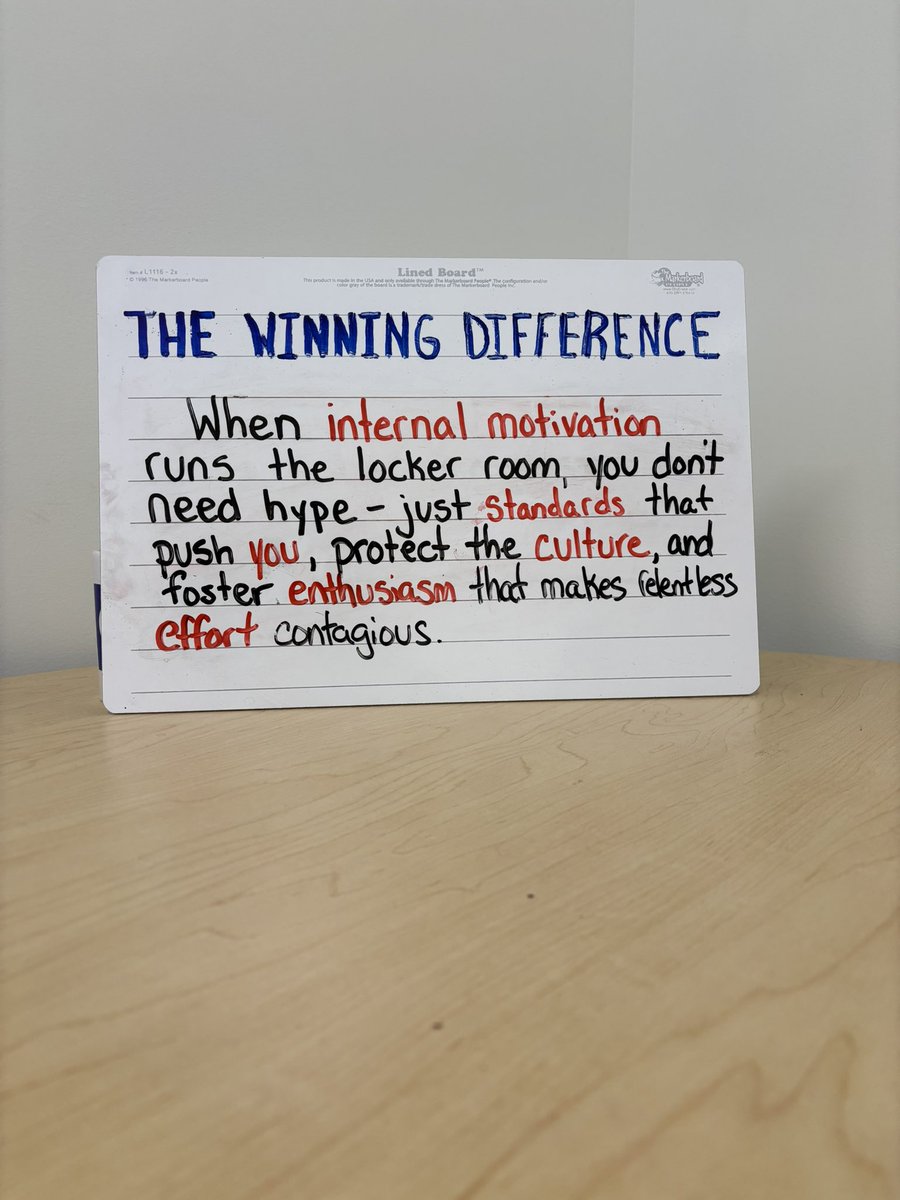 Item # L1116 - 2x
© 1996 The Markerboard People
Lined Board™
This product is made in the USA and only available through The Markerboard People® The configuration and/or
color gray of the board is a trademark/trade dress of The Markerboard People Inc.
The Markerboard
THE WINNING DIFFERENCE
When internal motivation
runs the locker room, you don't
need hype – just standards that
push you, protect the culture, and
foster enthusiasm that makes relentless
effort contagious.